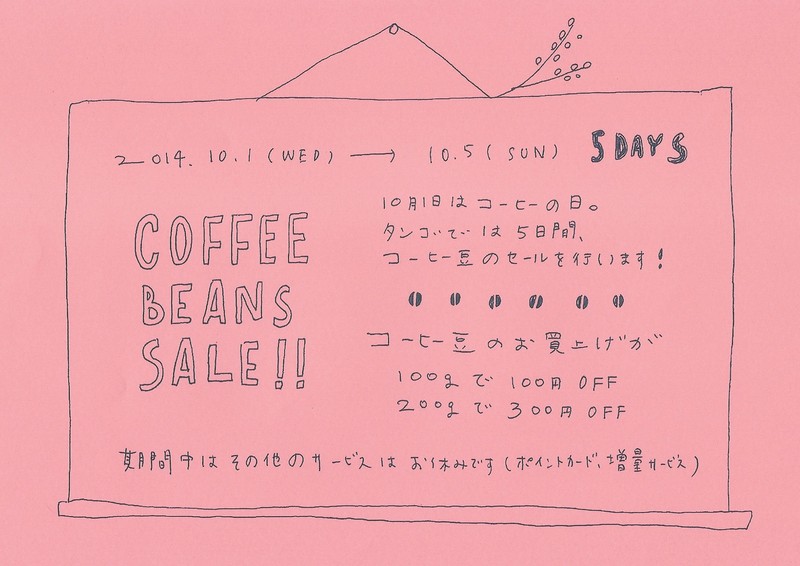 2014. 10.1 (WED) → 10.5 (SUN) 5DAYS
COFFEE
BEANS
SALE!!
10月1日はコーヒーの日。
タンゴでは5日間、
コーヒー豆のセールを行います!
コーヒー豆のお買上げが
100gで100円OFF
200gで300円OFF
期間中はその他のサービスはお休みです(ポイントカード、増量サービス)